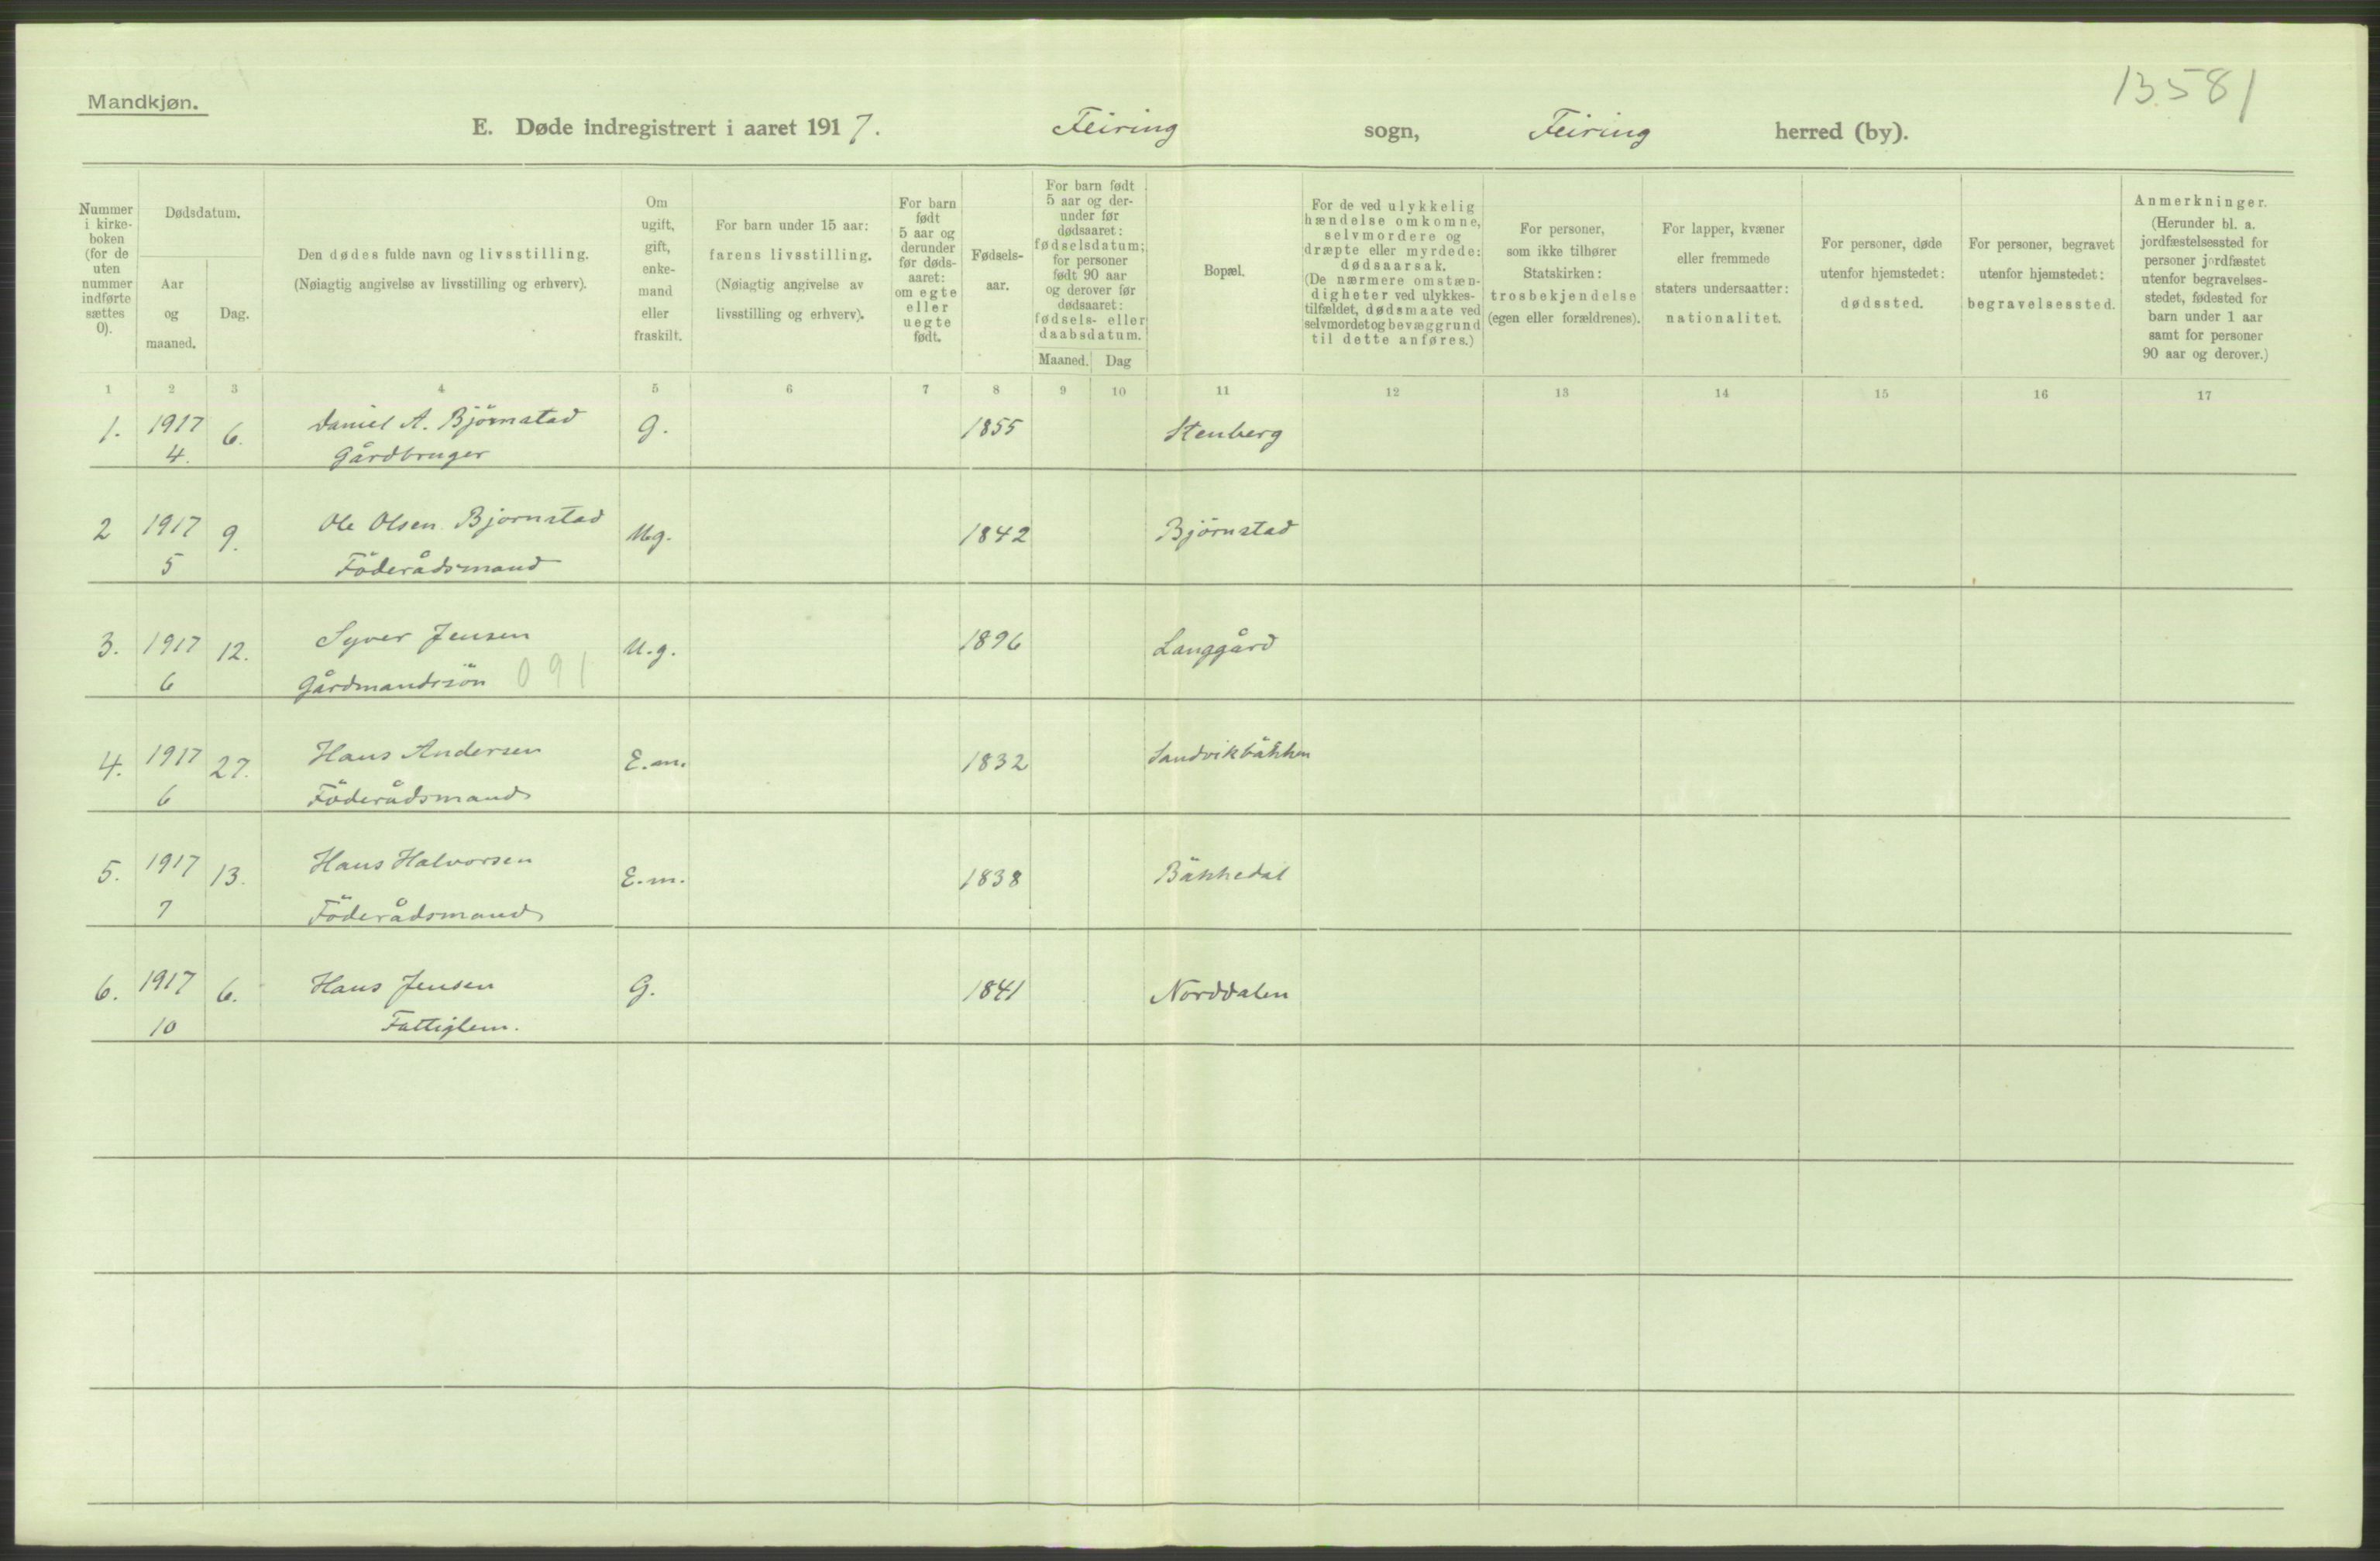 Mandkjøn.
13581
E. Døde indregistrert i aaret 1917. Feiring sogn, Feiring herred (by).
Nummer
i kirke-
boken
(for de
uten
nummer
indførte
sættes
0).
Dødsdatum.
Aar
og
maaned.
Dag.
Den dødes fulde navn og livsstilling.
(Nøiagtig angivelse av livsstilling og erhverv).
Om
ugift,
gift,
enke-
mand
eller
fraskilt.
For barn under 15 aar:
farens livsstilling.
(Nøiagtig angivelse av
livsstilling og erhverv).
For barn
født
5 aar og
derunder
før døds-
aaret:
om egte
eller
uegte
født.
Fødsels-
aar.
For barn født
5 aar og der-
under før
dødsaaret:
fødselsdatum;
for personer
født 90 aar
og derover før
dødsaaret:
fødsels- eller
daabsdatum.
Maaned. Dag
Bopæl.
For de ved ulykkelig
hændelse omkomne,
selvmordere og
dræpte eller myrdede:
dødsaarsak.
(De nærmere omstæn-
digheter ved ulykkes-
tilfældet, dødsmaate ved
selvmordet og bevæggrund
til dette anføres.)
For personer,
som ikke tilhører
Statskirken:
trosbekjendelse
(egen eller forældrenes).
For lapper, kvæner
eller fremmede
staters undersaatter:
nationalitet.
For personer, døde
utenfor hjemstedet:
dødssted.
For personer, begravet
utenfor hjemstedet:
begravelsessted.
Anmerkninger.
(Herunder bl. a.
jordfæstelsessted for
personer jordfæstet
utenfor begravelses-
stedet, fødested for
barn under 1 aar
samt for personer
90 aar og derover.)
1 2 3 4 5 6 7 8 9 10 11 12 13 14 15 16 17
1. 1917 6. Daniel A. Björnstad G. 1855 Stenberg
4. Gårdbruger
2 1917 9. Ole Olsen Bjornstad Ug. 1842 Björnstad
5 Föderådsmand
3. 1917 12. Syver Jensen U.g. 1896 Langgård
6 Gårdmandssön 091
4. 1917 27. Hans Andersen E.m. 1832 Sandvikbäkken
6 Föderådsmand
5. 1917 13. Hans Halvorsen E.m. 1838 Bäkkedal
7 Föderådsmand
6. 1917 6. Hans Jensen G. 1841 Norddalen
10 Fattiglem.